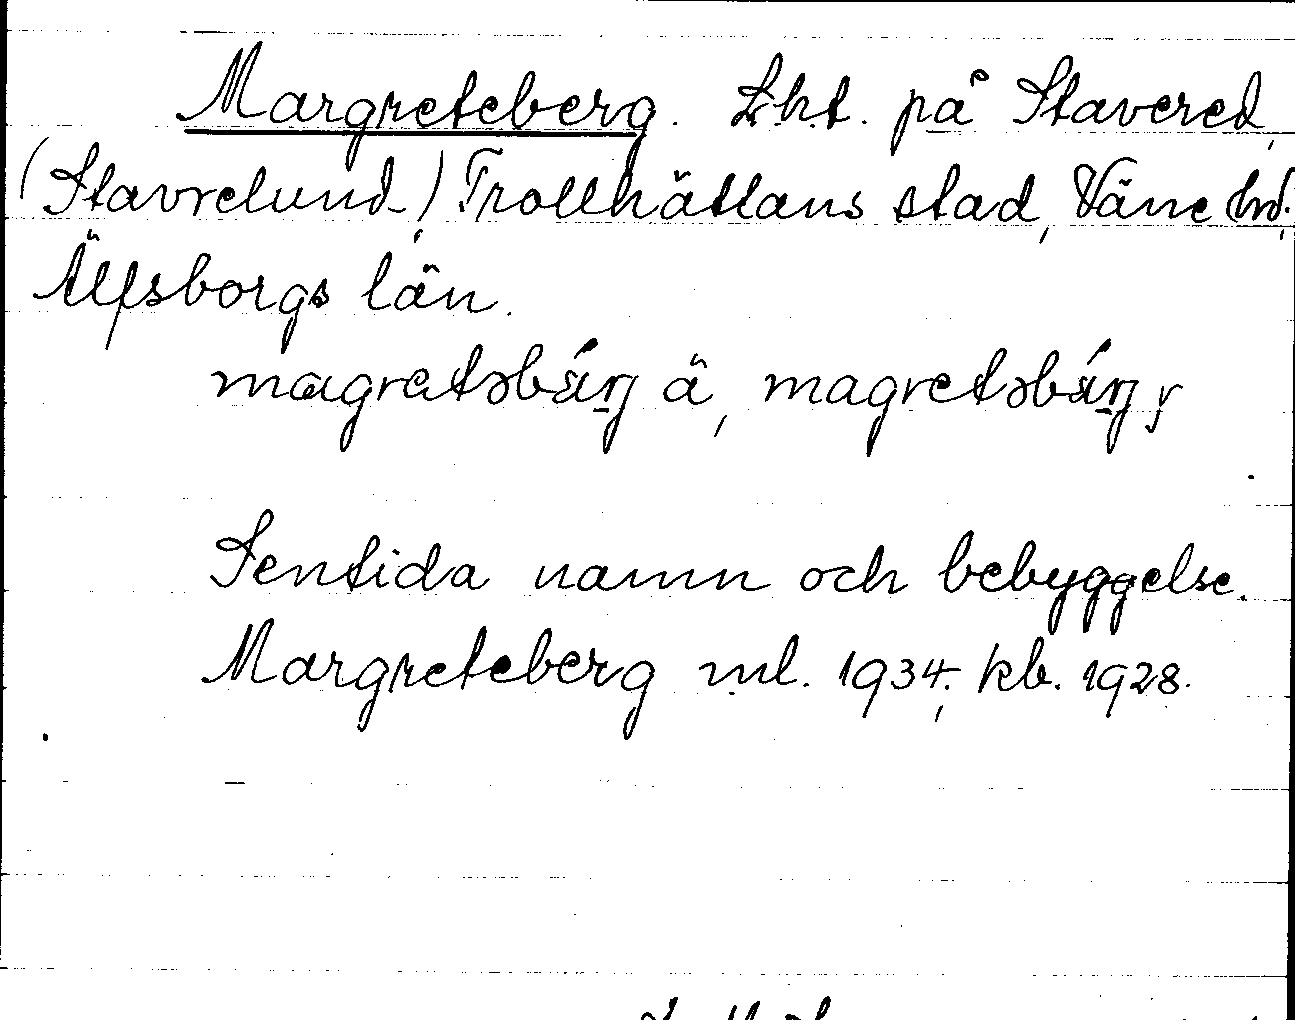 Margreteberg. Lht. på Stavered,
(Stavrelund), Trollhättans stad, Väne hd.,
Älfsborgs län.
magretəbárj ä, magretəbárj,
Sentida namn och bebyggelse.
Margreteberg ml. 1934; kb. 1928.